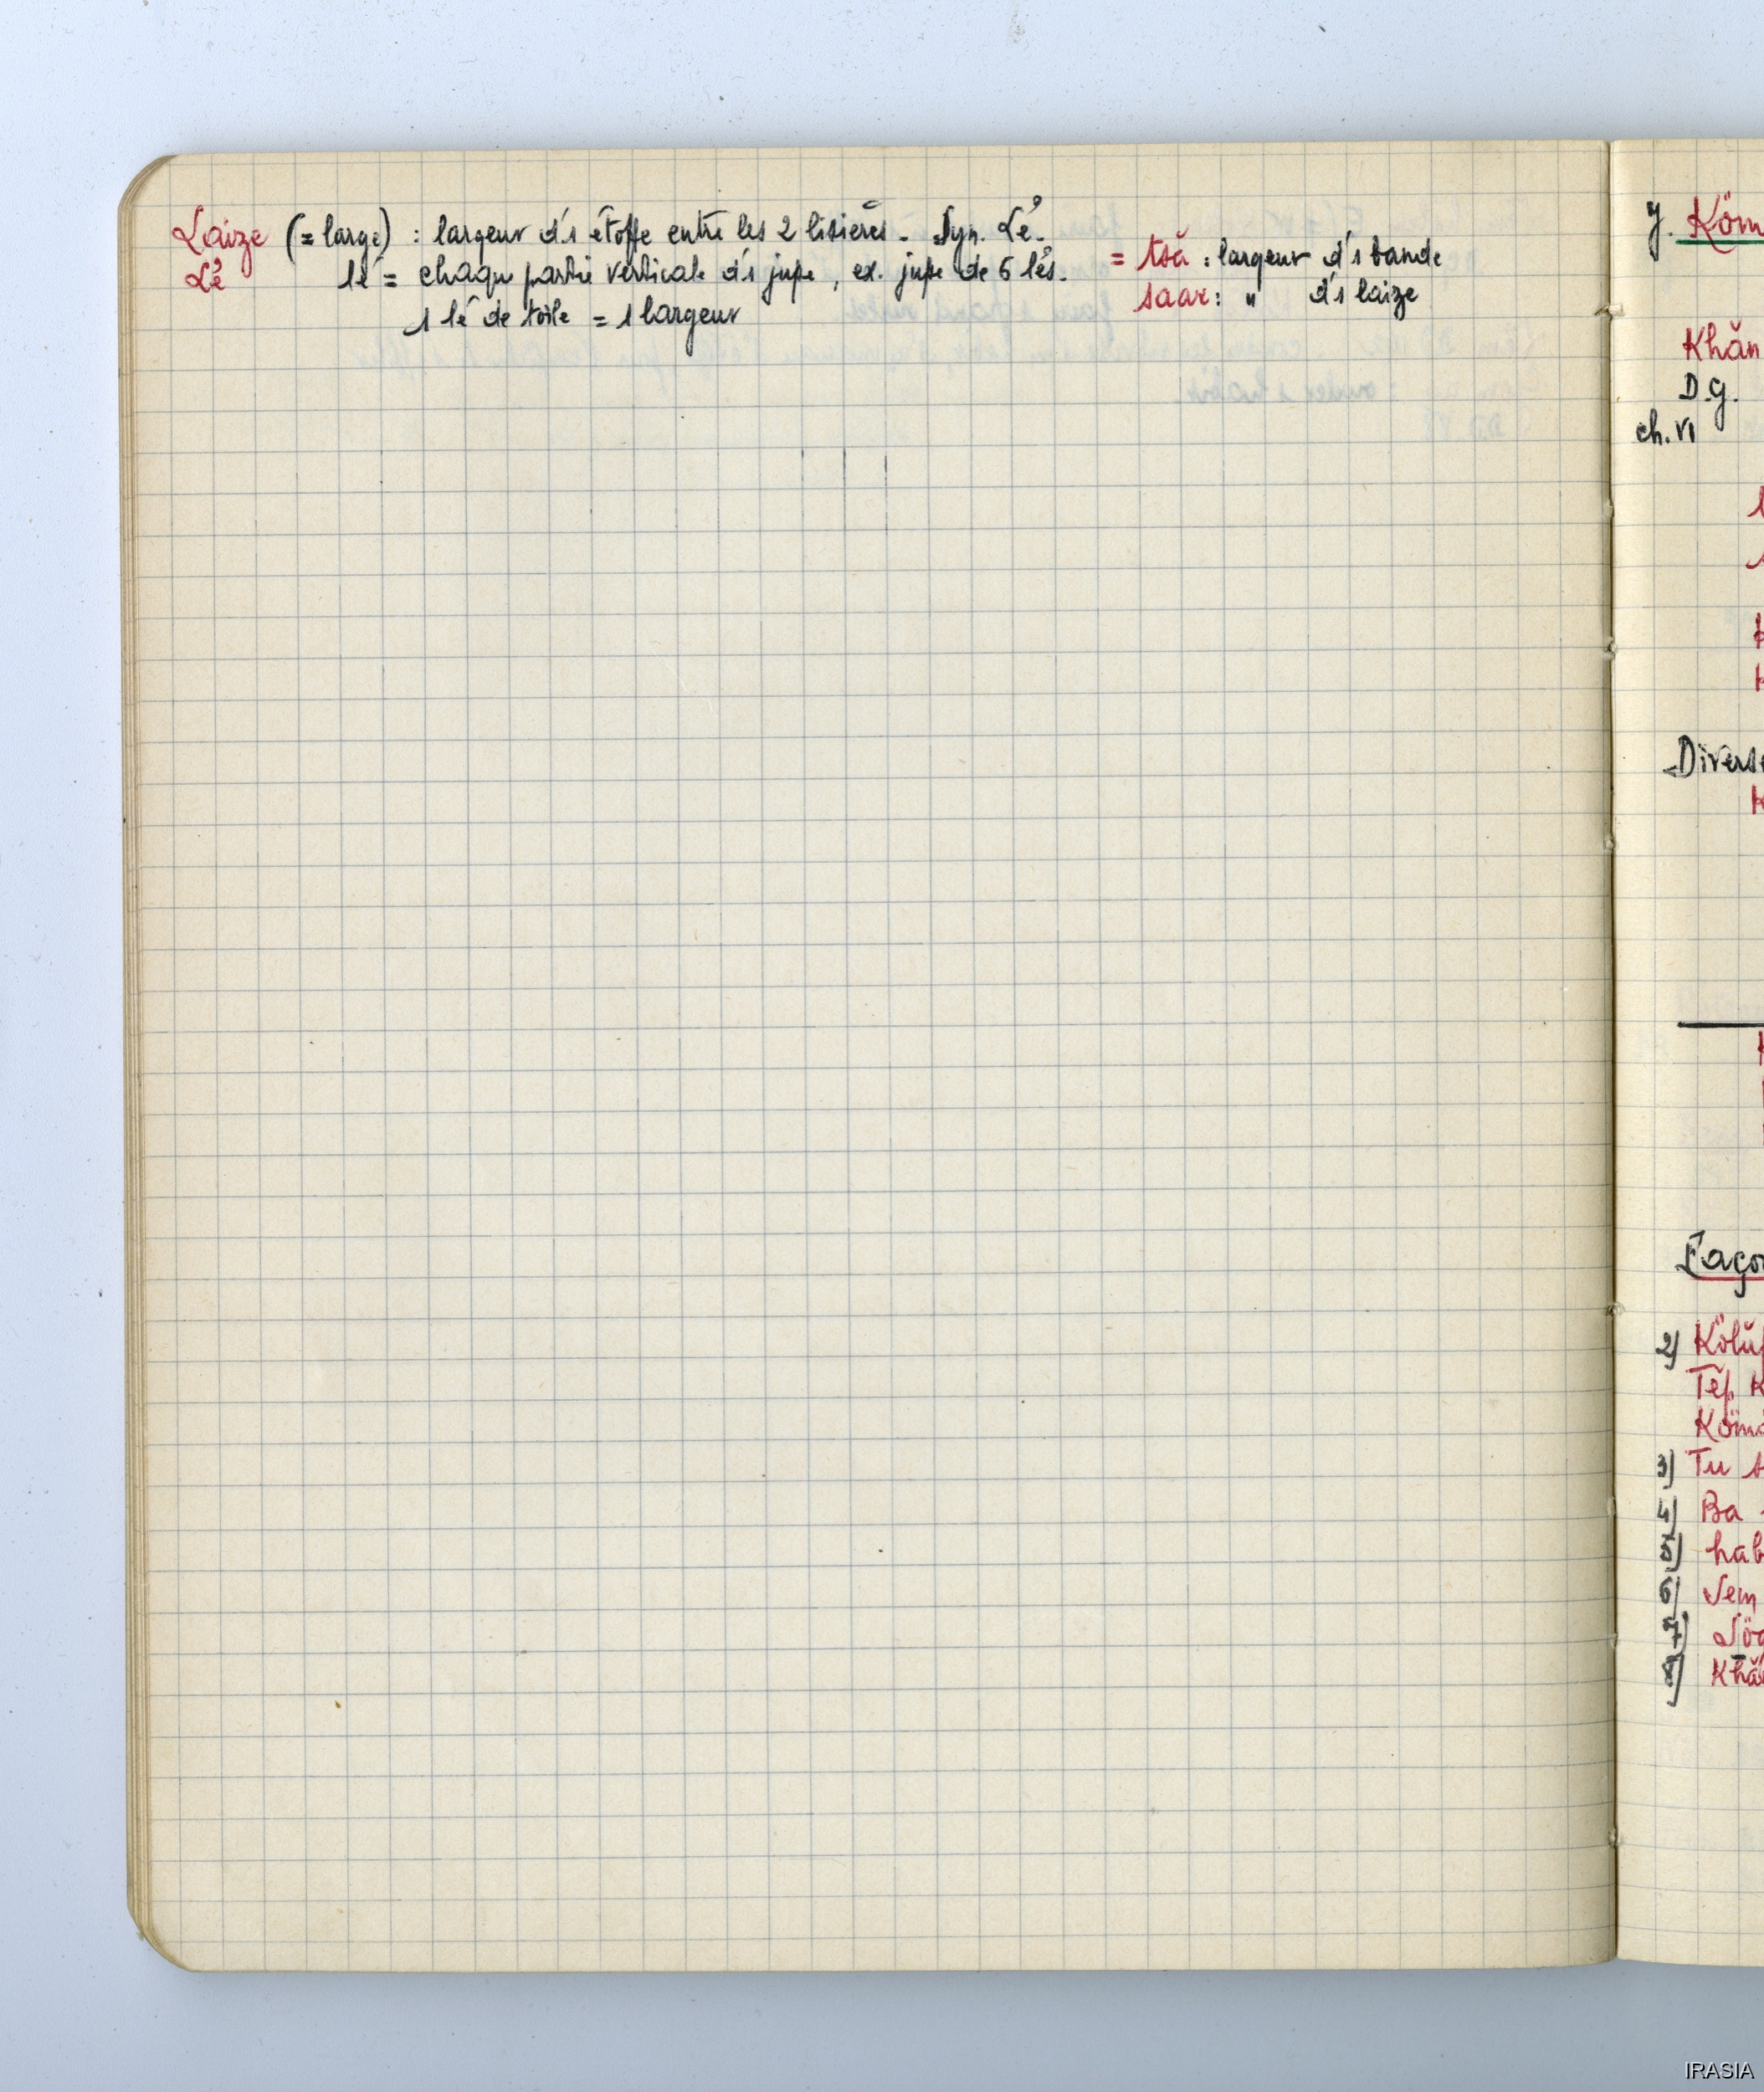 Laize (= large) : largeur d'1 étoffe entre les 2 lisières - Syn. Lé.
Lé lé = chaque partie verticale d'1 jupe, ex. jupe de 6 lés.
1 lé de toile = 1 largeur
= tsă : largeur d'1 bande
saar : " d'1 laize
y. Köm
Khăn
D.G.
ch. VI
Diverse
Façon
2) Kölŭ
Tĕp K
Köm
3) Tu s
4) Ba
5) hab
6) Sem
7) Söd
8) Khă
IRASIA